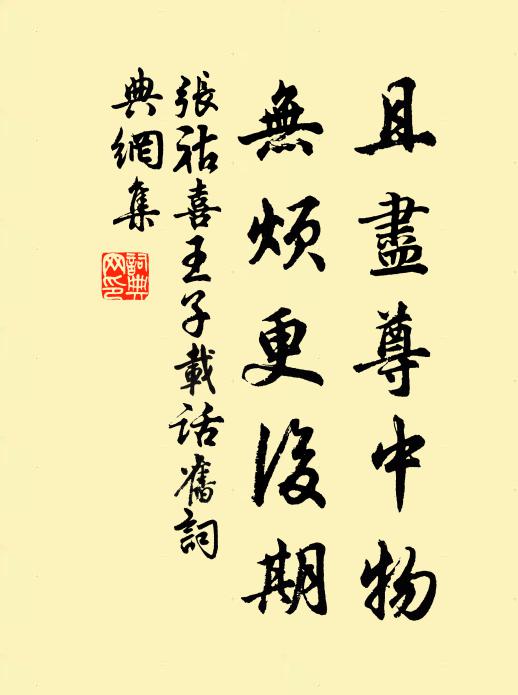 且盡尊中物
無煩更後期
張祜喜王子載話舊詞
典網集
詞典網印